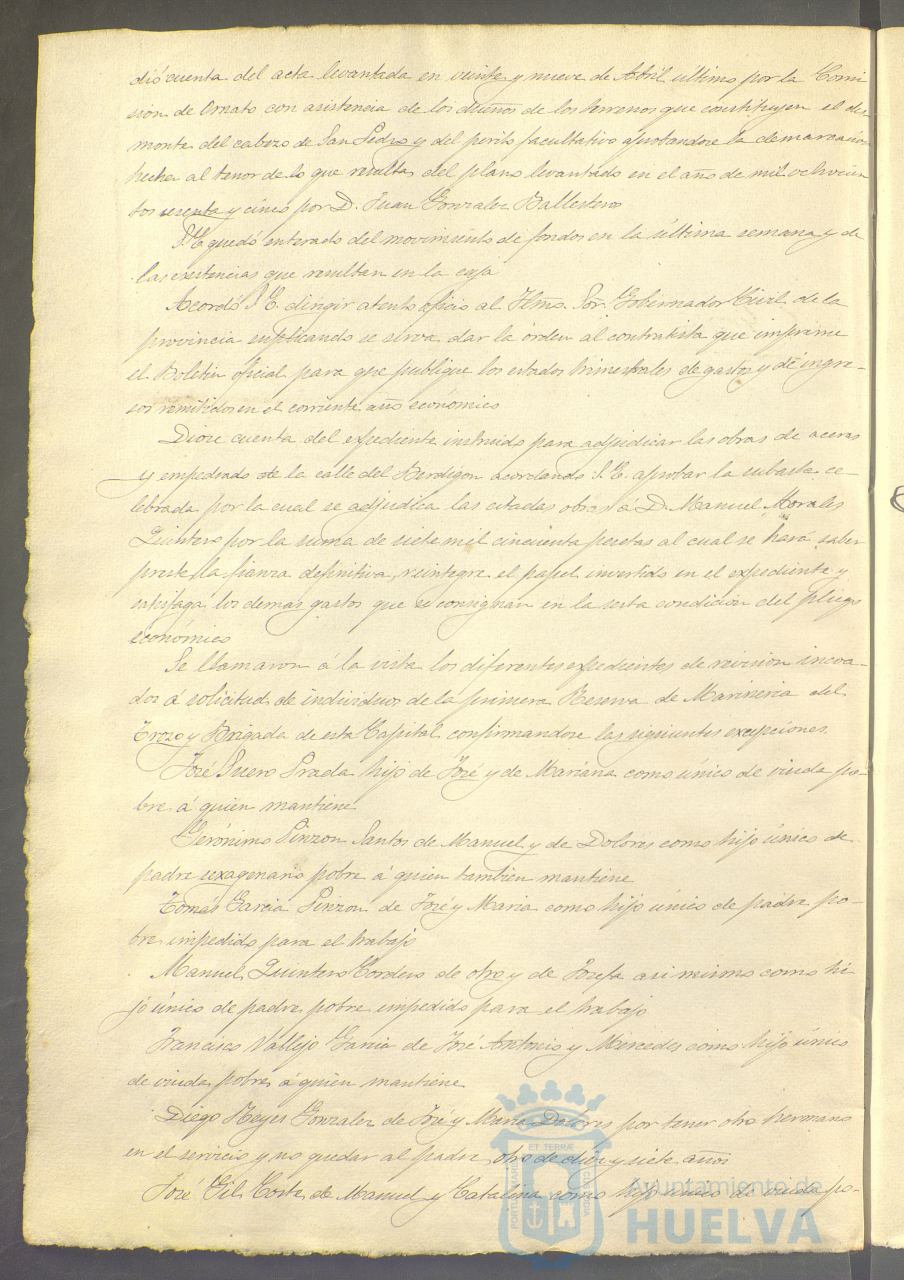 dió cuenta del acta levantada en veinte y nueve de Abril último por la Comi
sion de Ornato con asistencia de los dueños de los terrenos que constituyen el des
monte del cabezo de San Pedro y del perito facultativo aprobandose la demarcacion
hecha al tenor de lo que resulta del plano levantado en el año de mil ochocien
tos sesenta y cinco por D. Juan Gonzalez Ballesteros
S. E. quedó enterado del movimiento de fondos en la última semana y de
las existencias que resultan en la caja
Acordó S. E. dirigir atento oficio al Ilmo. Sor. Gobernador Civil de la
provincia suplicando se sirva dar la órden al contratista que imprime
el Boletin oficial para que publique los estados trimestrales de gastos y de ingre-
sos remitidos en el corriente año económico
Diose cuenta del expediente instruido para adjudicar las obras de aceras
y empedrado de la calle del Berdigon acordando S. E. aprobar la subasta ce-
lebrada por la cual se adjudica las citadas obras á D. Manuel Morales
Quintero por la suma de siete mil cincuenta pesetas al cual se hará saber
preste la fianza definitiva, reintegre el papel invertido en el expediente y
satisfaga los demas gastos que se consignan en la sesta condicion del pliego
económico
Se llamaron á la vista los diferentes expedientes de revision incoa-
dos á solicitud de individuos de la primera Reserva de Marineria del
Trozo y Brigada de esta Capital confirmandose las siguientes excepciones.
José Suero Prada hijo de José y de Mariana como único de viuda po-
bre á quien mantiene
Gerónimo Pinzon Santos de Manuel y de Dolores como hijo único de
padre sexagenario pobre á quien tambien mantiene
Tomás Garcia Pinzon de José y Maria como hijo único de padre po-
bre impedido para el trabajo
Manuel Quintero Cordero de otro y de Josefa asi mismo como hi
jo único de padre pobre impedido para el trabajo
Francisco Vallejo Garcia de José Antonio y Mercedes como hijo único
de viuda pobre á quien mantiene
Diego Reyes Gonzalez de José y Maria Dolores por tener otro hermano
en el servicio y no quedar al padre otro de diez y siete años
José Gil Corte de Manuel y Catalina como hijo único de viuda po-
Ayuntamiento de
HUELVA